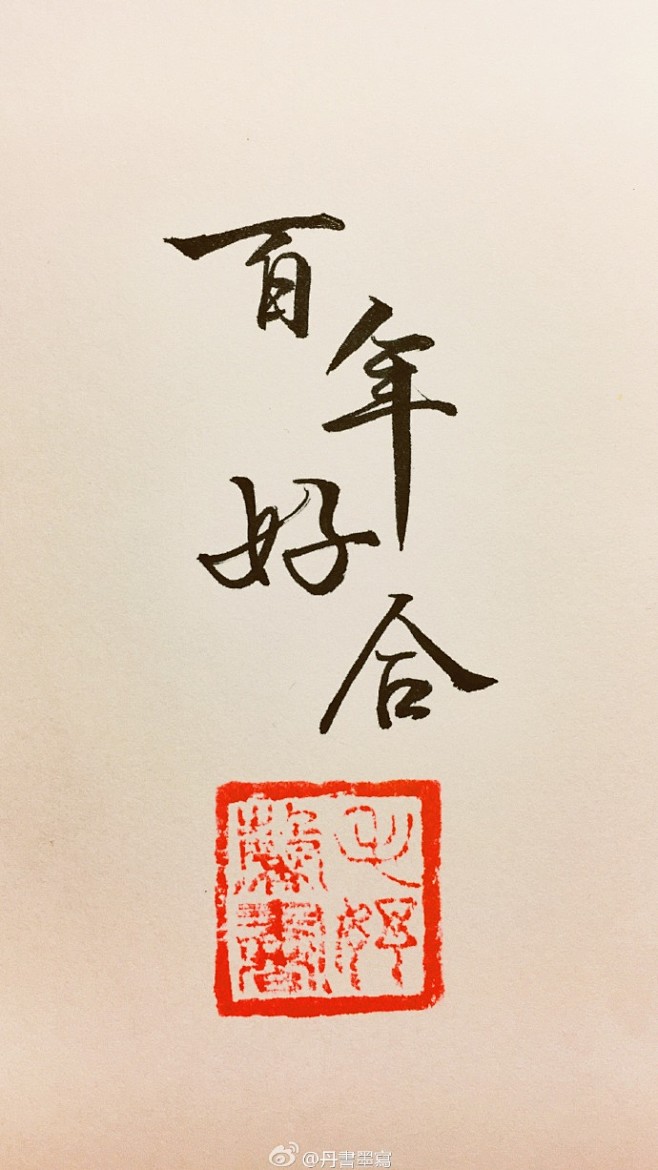 百年好合
@丹書墨寫